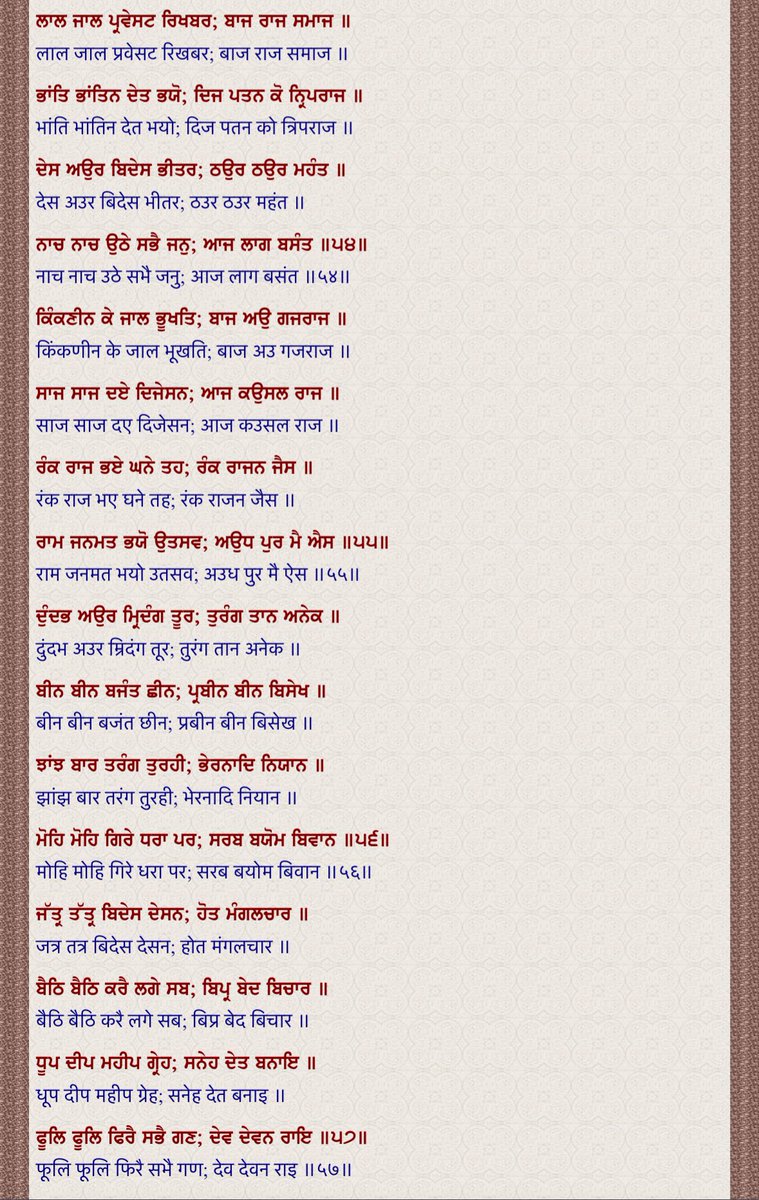 ਲਾਲ ਜਾਲ ਪ੍ਰਵੇਸਟ ਰਿਖਬਰ; ਬਾਜ ਰਾਜ ਸਮਾਜ ॥
लाल जाल प्रवेसट रिखबर; बाज राज समाज ॥
ਭਾਂਤਿ ਭਾਂਤਿਨ ਦੇਤ ਭਯੋ; ਦਿਜ ਪਤਨ ਕੋ ਨ੍ਰਿਪਰਾਜ ॥
भांति भांतिन देत भयो; दिज पतन को न्रिपराज ॥
ਦੇਸ ਅਉਰ ਬਿਦੇਸ ਭੀਤਰ; ਠਉਰ ਠਉਰ ਮਹੰਤ ॥
देस अउर बिदेस भीतर; ठउर ठउर महंत ॥
ਨਾਚ ਨਾਚ ਉਠੇ ਸਭੈ ਜਨੁ; ਆਜ ਲਾਗ ਬਸੰਤ ॥੫੪॥
नाच नाच उठे सभै जनु; आज लाग बसंत ॥५४॥
ਕਿੰਕਣੀਨ ਕੇ ਜਾਲ ਭੂਖਤਿ; ਬਾਜ ਅਉ ਗਜਰਾਜ ॥
किंकणीन के जाल भूखति; बाज अउ गजराज ॥
ਸਾਜ ਸਾਜ ਦਏ ਦਿਜੇਸਨ; ਆਜ ਕਉਸਲ ਰਾਜ ॥
साज साज दए दिजेसन; आज कउसल राज ॥
ਰੰਕ ਰਾਜ ਭਏ ਘਨੇ ਤਹ; ਰੰਕ ਰਾਜਨ ਜੈਸ ॥
रंक राज भए घने तह; रंक राजन जैस ॥
ਰਾਮ ਜਨਮਤ ਭਯੋ ਉਤਸਵ; ਅਉਧ ਪੁਰ ਮੈ ਐਸ ॥੫੫॥
राम जनमत भयो उतसव; अउध पुर मै ऐस ॥५५॥
ਦੁੰਦਭ ਅਉਰ ਮ੍ਰਿਦੰਗ ਤੂਰ; ਤੁਰੰਗ ਤਾਨ ਅਨੇਕ ॥
दुंदभ अउर म्रिदंग तूर; तुरंग तान अनेक ॥
ਬੀਨ ਬੀਨ ਬਜੰਤ ਛੀਨ; ਪ੍ਰਬੀਨ ਬੀਨ ਬਿਸੇਖ ॥
बीन बीन बजंत छीन; प्रबीन बीन बिसेख ॥
ਝਾਂਝ ਬਾਰ ਤਰੰਗ ਤੁਰਹੀ; ਭੇਰਨਾਦਿ ਨਿਯਾਨ ॥
झांझ बार तरंग तुरही; भेरनादि नियान ॥
ਮੋਹਿ ਮੋਹਿ ਗਿਰੇ ਧਰਾ ਪਰ; ਸਰਬ ਬਯੋਮ ਬਿਵਾਨ ॥੫੬॥
मोहि मोहि गिरे धरा पर; सरब बयोम बिवान ॥५६॥
ਜੱਤ੍ਰ ਤੱਤ੍ਰ ਬਿਦੇਸ ਦੇਸਨ; ਹੋਤ ਮੰਗਲਚਾਰ ॥
जत्र तत्र बिदेस देसन; होत मंगलचार ॥
ਬੈਠਿ ਬੈਠਿ ਕਰੈ ਲਗੇ ਸਬ; ਬਿਪ੍ਰ ਬੇਦ ਬਿਚਾਰ ॥
बैठि बैठि करै लगे सब; बिप्र बेद बिचार ॥
ਧੂਪ ਦੀਪ ਮਹੀਪ ਗ੍ਰੇਹ; ਸਨੇਹ ਦੇਤ ਬਨਾਇ ॥
धूप दीप महीप ग्रेह; सनेह देत बनाइ ॥
ਫੂਲਿ ਫੂਲਿ ਫਿਰੈ ਸਭੈ ਗਣ; ਦੇਵ ਦੇਵਨ ਰਾਇ ॥੫੭॥
फूलि फूलि फिरै सभै गण; देव देवन राइ ॥५७॥